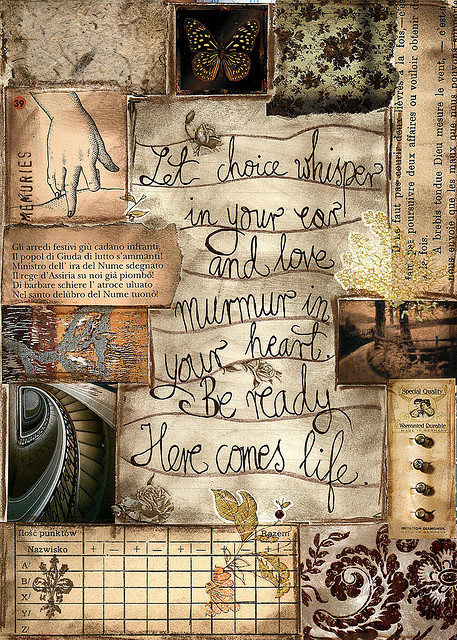 39
MEMORIES
Let choice whisper
in your ear
and love
murmur in
your heart.
Be ready
Here comes life.
Gli arredi festivi giù cadano infranti,
Il popol di Giuda di lutto s'ammanti!
Ministro dell' ira del Nume sdegnato
Il rege d'Assiria su noi già piombò!
Di barbare schiere l' atroce ululato
Nel santo delúbro del Nume tuonò!
Il ne faut pas courir deux lièvres à la fois,
faut pas poursuivre deux affaires ou vouloir obtenir
la fois.
A brebis tondue Dieu mesure le vent, — c'est
nous envoie que les maux que nous pouvons
Special Quality
Warranted Durable
MADE IN GERMANY
IMITATION DIAMONDS
Ilość punktów
Razem
Nazwisko + - + - + -
A/
B/
X/
Y/
Z/